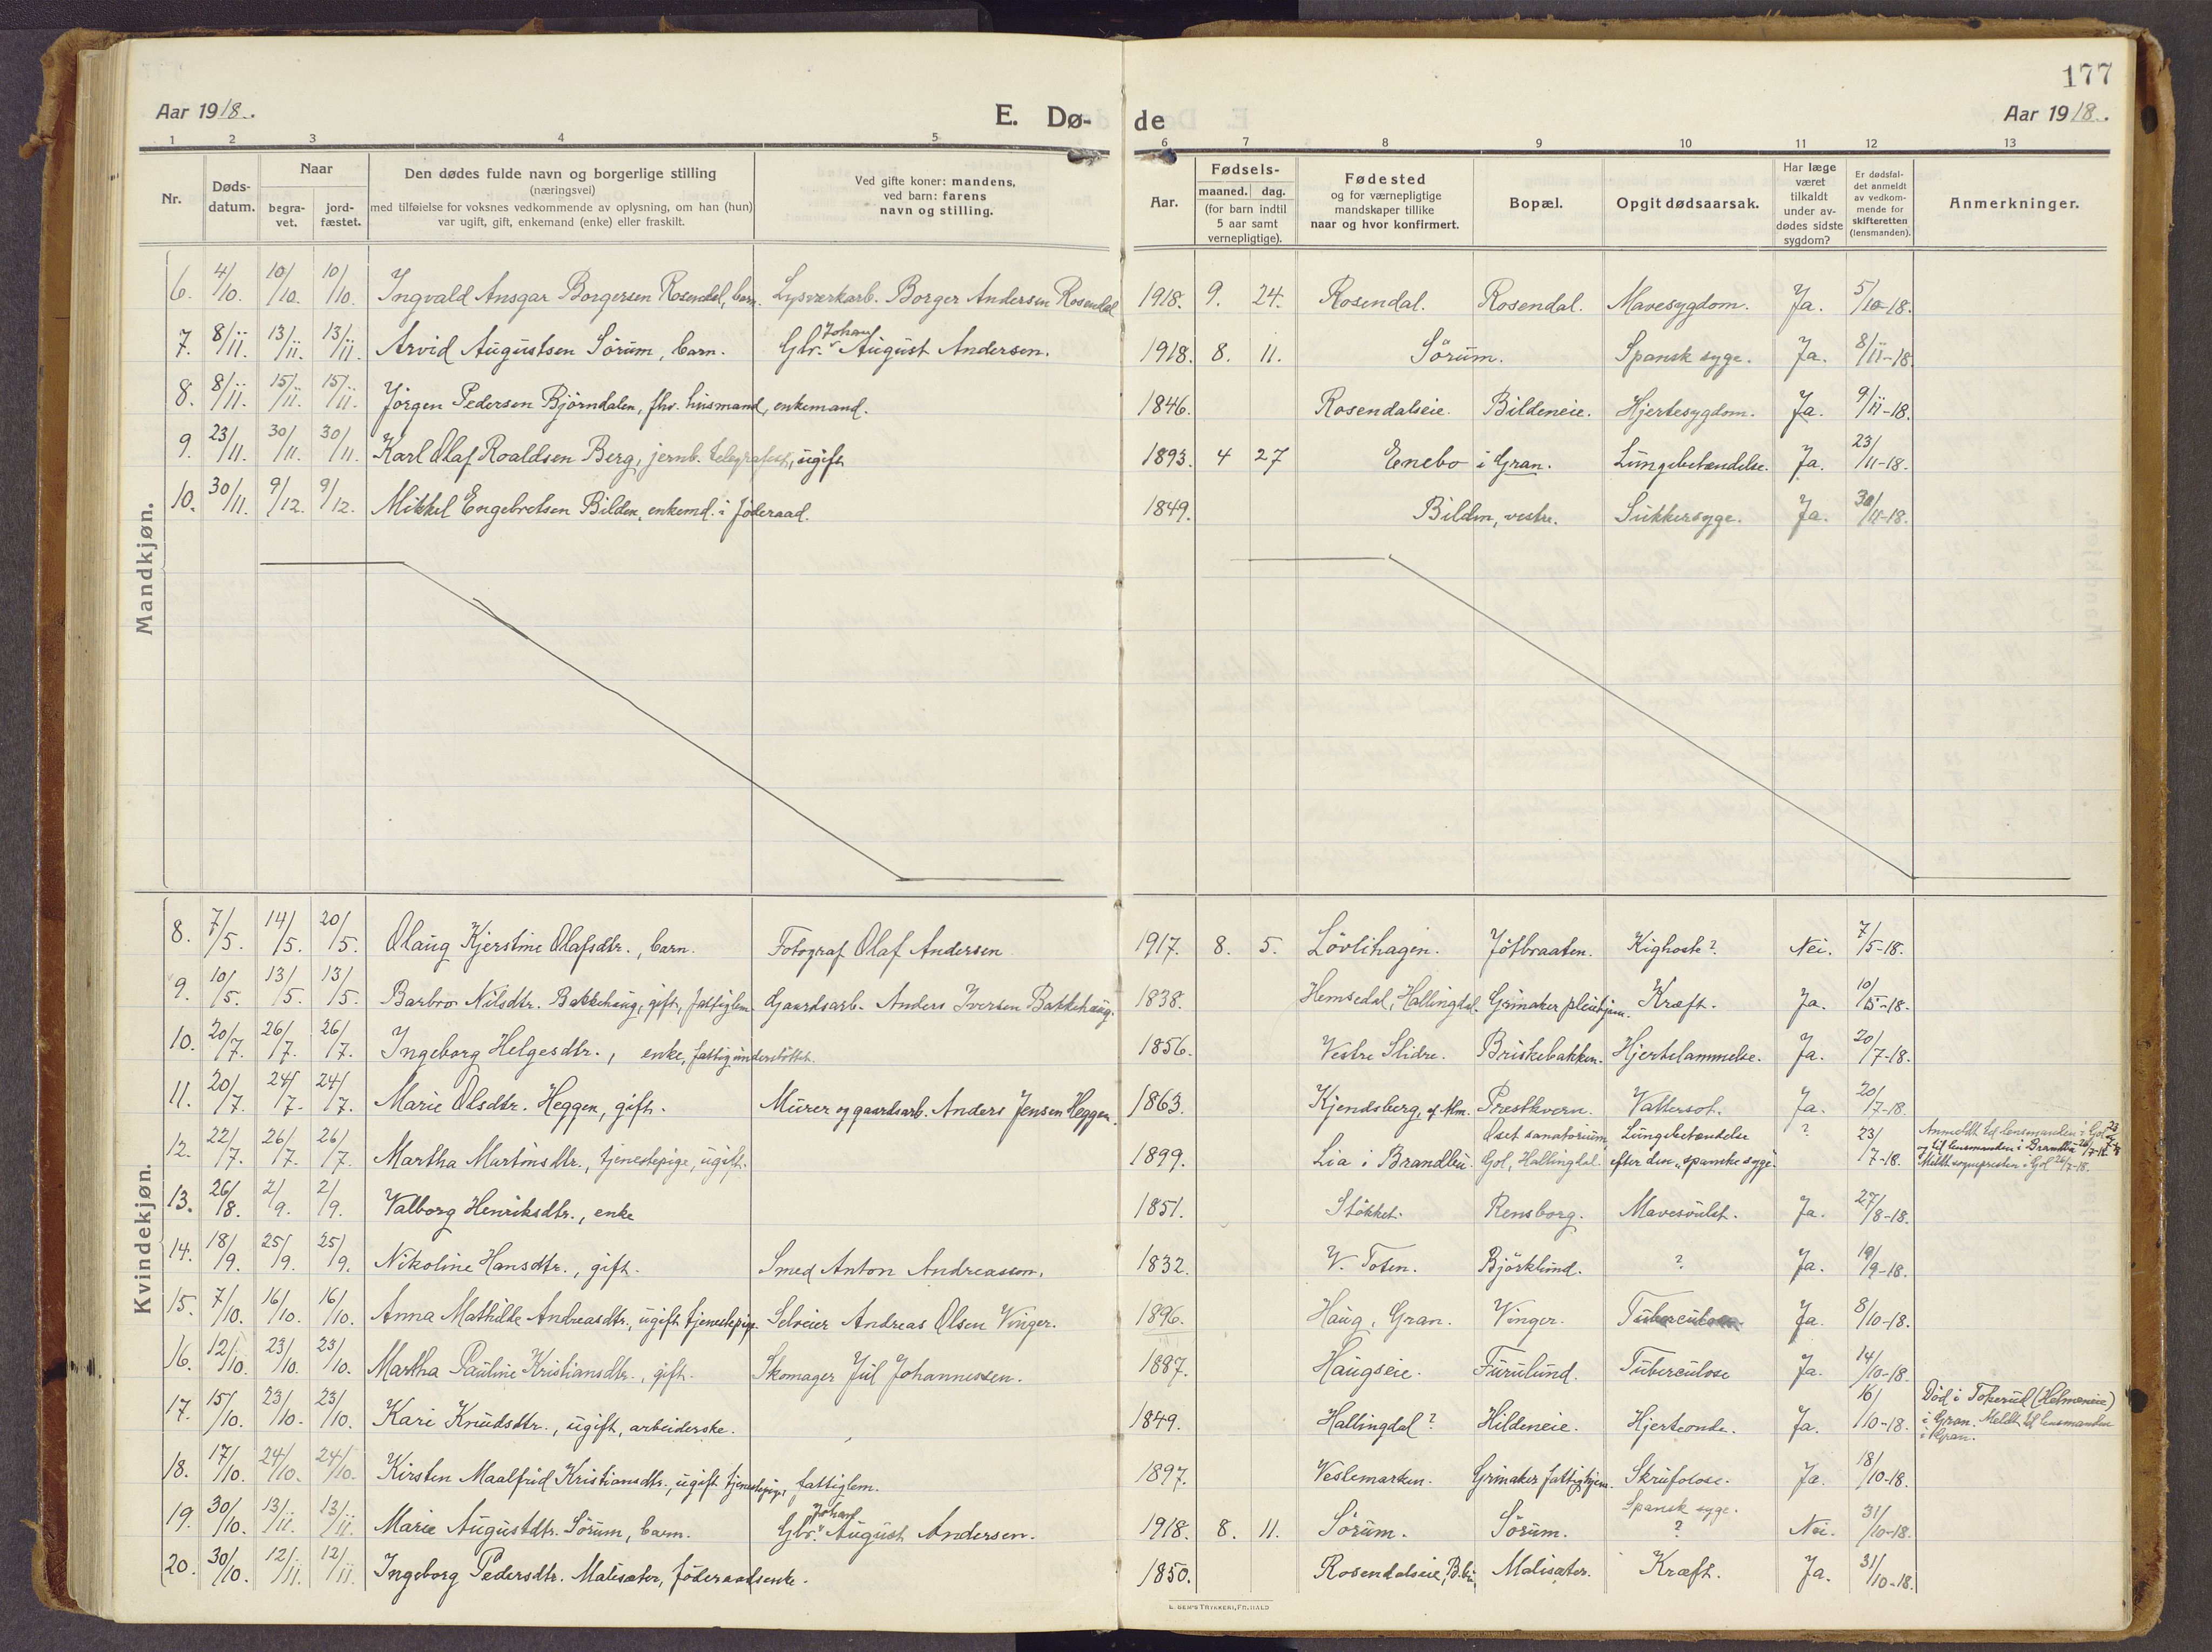 177
Aar 1918. E. Dø- de Aar 1918.
1 2 3 4 5 6 7 8 9 10 11 12 13
Nr. Døds-datum. Naar begra-vet. jord-fæstet. Den dødes fulde navn og borgerlige stilling (næringsvei) med tilføielse for voksnes vedkommende av oplysning, om han (hun) var ugift, gift, enkemand (enke) eller fraskilt. Ved gifte koner: mandens, ved barn: farens navn og stilling. Aar. Fødsels- maaned. dag. (for barn indtil 5 aar samt vernepligtige). Fødested og for værnepligtige mandskaper tillike naar og hvor konfirmert. Bopæl. Opgit dødsaarsak. Har læge været tilkaldt under av-dødes sidste sygdom? Er dødsfal-det anmeldt av vedkom-mende for skifteretten (lensmanden). Anmerkninger.
Mandkjøn.
6. 4/10. 10/10. 10/10. Ingvald Ansgar Borgersen Rosendal, barn. Lysverkarb. Borger Andersen Rosendal 1918. 9. 24. Rosendal. Rosendal. Mavesygdom. Ja. 5/10-18.
7. 8/11. 13/11. 13/11. Arvid Augustsen Sörum, barn. Gbr. Johan August Andersen. 1918. 8. 11. Sörum. Spansk syge. Ja. 8/11-18.
8. 8/11. 15/11. 15/11. Jörgen Pedersen Björndalen, fhv. husmand, enkemand. 1846. Rosendalseie. Bildeneie. Hjertesygdom. Ja. 9/11-18.
9. 23/11. 30/11. 30/11. Karl Olaf Roaldsen Berg, jernb. telegrafist, ugift 1893. 4 27 Enebo i Gran. Lungebetændelse. Ja. 23/11-18.
10. 30/11. 9/12. 9/12. Mikkel Engebretsen Bilden, enkemd. i föderaad. 1849. Bilden, vestre. Sukkersyge. Ja. 30/11-18.
Kvindekjøn.
8. 7/5. 14/5. 20/5. Olaug Kjerstine Olafsdtr., barn. Fotograf Olaf Andersen 1917. 8. 5. Lövlihagen. Jötbraaten. Kighoste? Nei. 7/5-18.
9. 10/5. 13/5. 13/5. Barbro Nilsdtr. Bakkehaug, gift, fattiglem Gaardsarb. Anders Iversen Bakkehaug. 1838. Hemsedal, Hallingdal. Grinaker pleiehjem. Kræft. Ja. 10/5-18.
10. 20/7. 26/7. 26/7. Ingeborg Helgesdtr., enke, fattigunderstöttet. 1856. Vestre Slidre. Briskebakken. Hjertelammelse. Ja. 20/7-18.
11. 20/7. 24/7. 24/7. Marie Olsdtr. Heggen, gift. Murer og gaardsarb. Anders Jensen Heggen. 1863. Kjendsberg, Prestkvern. Vattersot. Ja. 20/7-18.
12. 22/7. 26/7. 26/7. Martha Martinsdtr., tjenestepige, ugift. 1899. Lia i Brandbu. Oset sanatorium, Gol, Hallingdal. Lungebetændelse efter den "spanske syge". ? 23/7-18. Anmeldt til lensmanden i Gol 23/7-18 og til lensmanden i Brandbu 26/7-18. Meldt sognepresten i Gol 26/7-18.
13. 26/8. 2/9. 2/9. Valborg Henriksdtr., enke 1851. Stökket. Rensborg. Mavesvulst. Ja. 27/8-18.
14. 18/9. 25/9. 25/9. Nikoline Hansdtr., gift. Smed Anton Andreassen. 1832. V. Toten. Björklund. ? Ja. 19/9-18.
15. 7/10. 16/10. 16/10. Anna Mathilde Andreasdtr., ugift tjenestepige. Selveier Andreas Olsen Vinger. 1896. Haug, Gran. Vinger. Tuberculose. Ja. 8/10-18.
16. 12/10. 23/10. 23/10. Martha Pauline Kristiansdtr., gift. Skomager Jul Johannessen. 1887. Haugseie. Furulund. Tuberculose Ja. 14/10-18.
17. 15/10. 23/10. 23/10. Kari Knudsdtr., ugift, arbeiderske. 1849. Hallingdal? Hildeneie. Hjerteonde. Ja. 16/10-18. Död i Tokerud i Gran. Meldt til lensmanden i Gran.
18. 17/10. 24/10. 24/10. Kirsten Maalfrid Kristiansdtr., ugift tjenestepige, fattiglem. 1897. Veslemarken. Grinaker fattighjem. Skrufolose. Ja. 18/10-18.
19. 30/10. 13/11. 13/11. Marie Augustdtr. Sörum, barn. Gbr. Johan August Andersen. 1918. 8. 11. Sörum. Sörum. Spansk syge. ? Nei. 31/10-18.
20. 30/10. 12/11. 12/11. Ingeborg Pedersdtr. Malisæter, föderaadsenke. 1850. Rosendalseie, Malisæter. Kræft. Ja. 31/10-18.